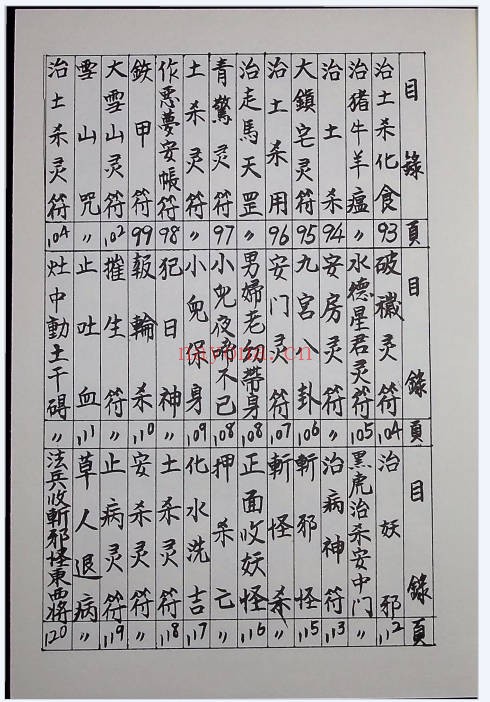 目錄 頁
治土杀化食 93
治猪牛羊瘟 〃
治土杀 94
大鎮宅灵符 95
治土杀用 96
治走馬天罡 〃
青驚灵符 97
土杀灵符 〃
作惡夢安帳符 98
鉃甲符 99
大雪山灵符 102
雪山咒 〃
治土杀灵符 104
目錄 頁
破穢灵符 104
水德星君灵符 105
安房灵符 〃
九宫八卦 106
安门灵符 107
男婦老幼帶身 108
小兒夜啼不已 108
小兒保身 109
犯日神 〃
報輪杀 110
摧生符 〃
止吐血 111
灶中動土干碍 〃
目錄 頁
治妖邪 112
黑虎治杀安中门 〃
治病神符 113
斬邪怪 115
斬怪杀 〃
正面收妖怪 116
押杀亡 〃
化水洗吉 117
土杀灵符 118
安杀灵符 〃
止病灵符 119
草人退病 〃
法兵收斬邪怪東西將 120
nayona.cn